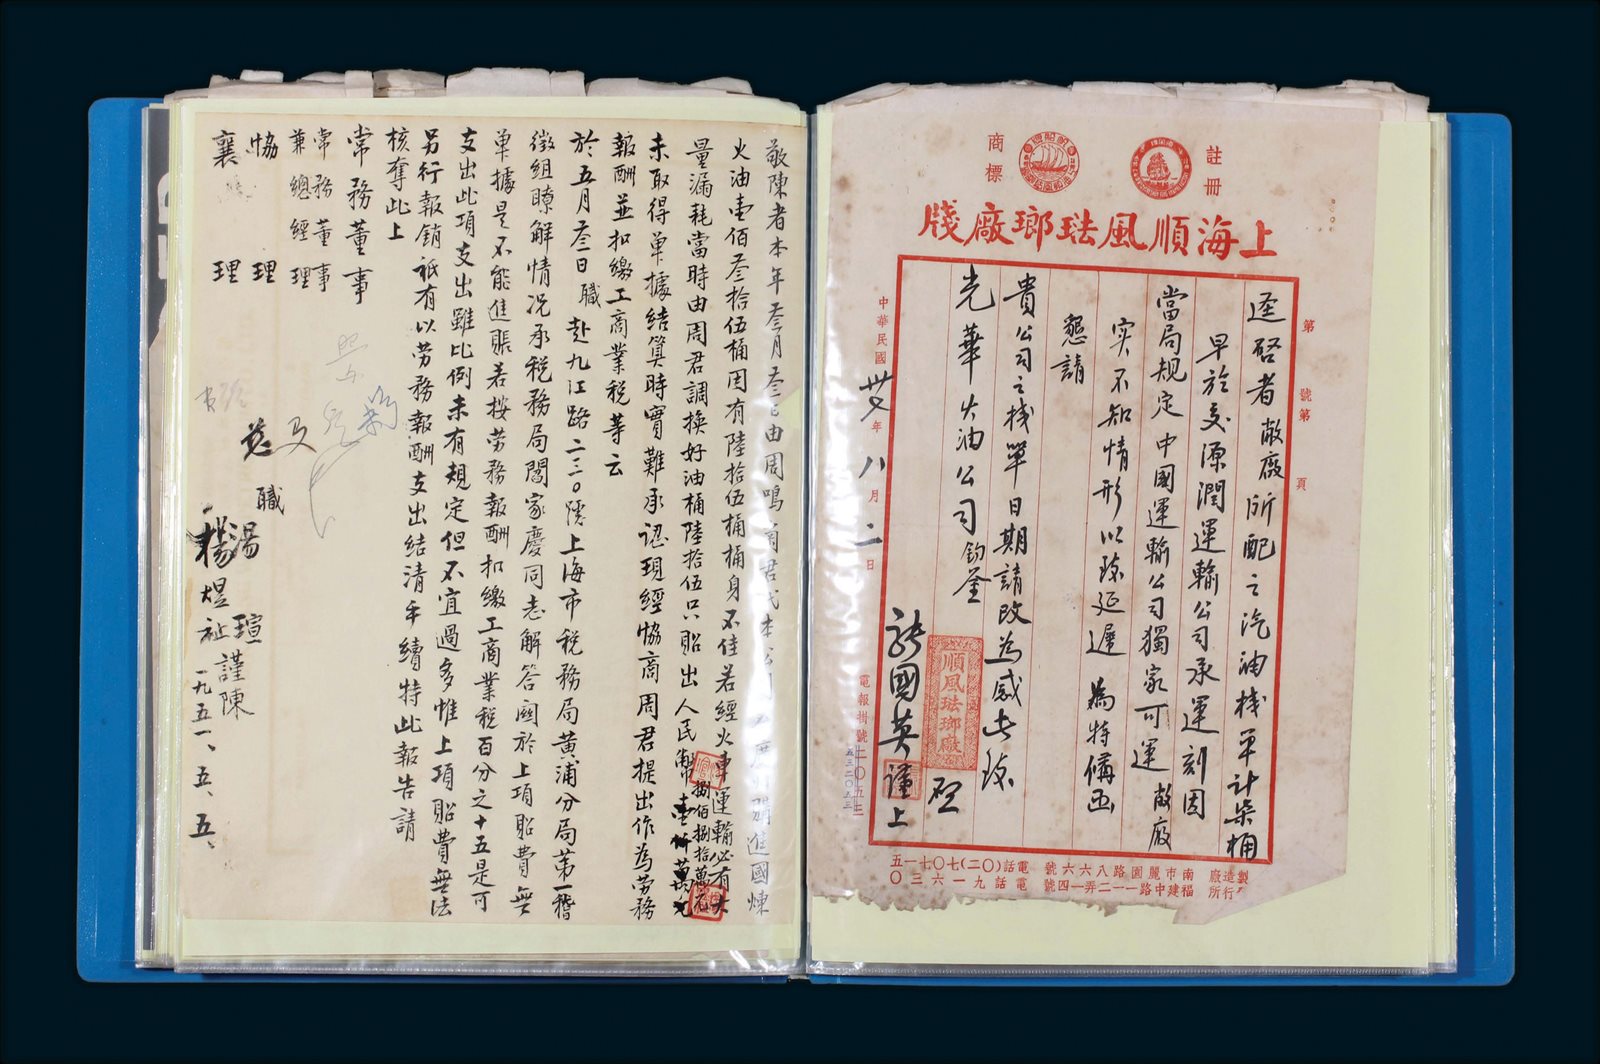 註冊
商標
上海順風琺瑯廠牋
第 號第 頁
逕啓者敝廠所配之汽油棧單計柒桶
早於交源潤運輸公司承運刻因
當局規定中國運輸公司獨家可運敝廠
实不知情形以致延遲為特備函
懇請
貴公司之棧單日期請改為感此致
光華火油公司鈞鉴
順風琺瑯廠
啟
國英謹上
中華民國卅年八月二日
電報掛號二〇五三
五三二〇五三
製造廠 南市麗園路八六六號 電話(〇二)七〇七一五
行所 福建中路一一二弄一四號 電話九一六三〇
敬陳者本年叁月叁日由周鳴
國煉
火油壹佰叁拾伍桶因有陸拾伍桶桶身不佳若經火車運輸必有大
量漏耗當時由周君調換好油桶陸拾伍只貼出人民幣捌佰捌拾萬元
未取得单據結算時實難承認現經協商周君提出作為劳務
報酬並扣繳工商業税等云
於五月叁日職赴九江路二三〇號上海市税務局黄浦分局第一稽
徵組瞭解情况承税務局閻家慶同志解答関於上項貼費無
单據是不能進賬若按劳務報酬扣繳工商業税百分之十五是可
支出此項支出雖比例未有規定但不宜過多惟上項貼費無法
另行報銷祇有以劳務報酬支出結清手續特此報告請
核奪此上
常務董事
常務董事
兼總經理
協理
襄理
職
湯瑄謹陳
楊煜祉
一九五一、五、五、